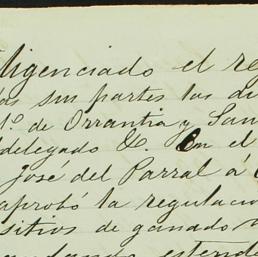 ligenciado el re
las sus partes las di
1º. de Orrantia y San
delegado &. En el
Jose del Parral á
aprobó la regulacio
sitios de ganado